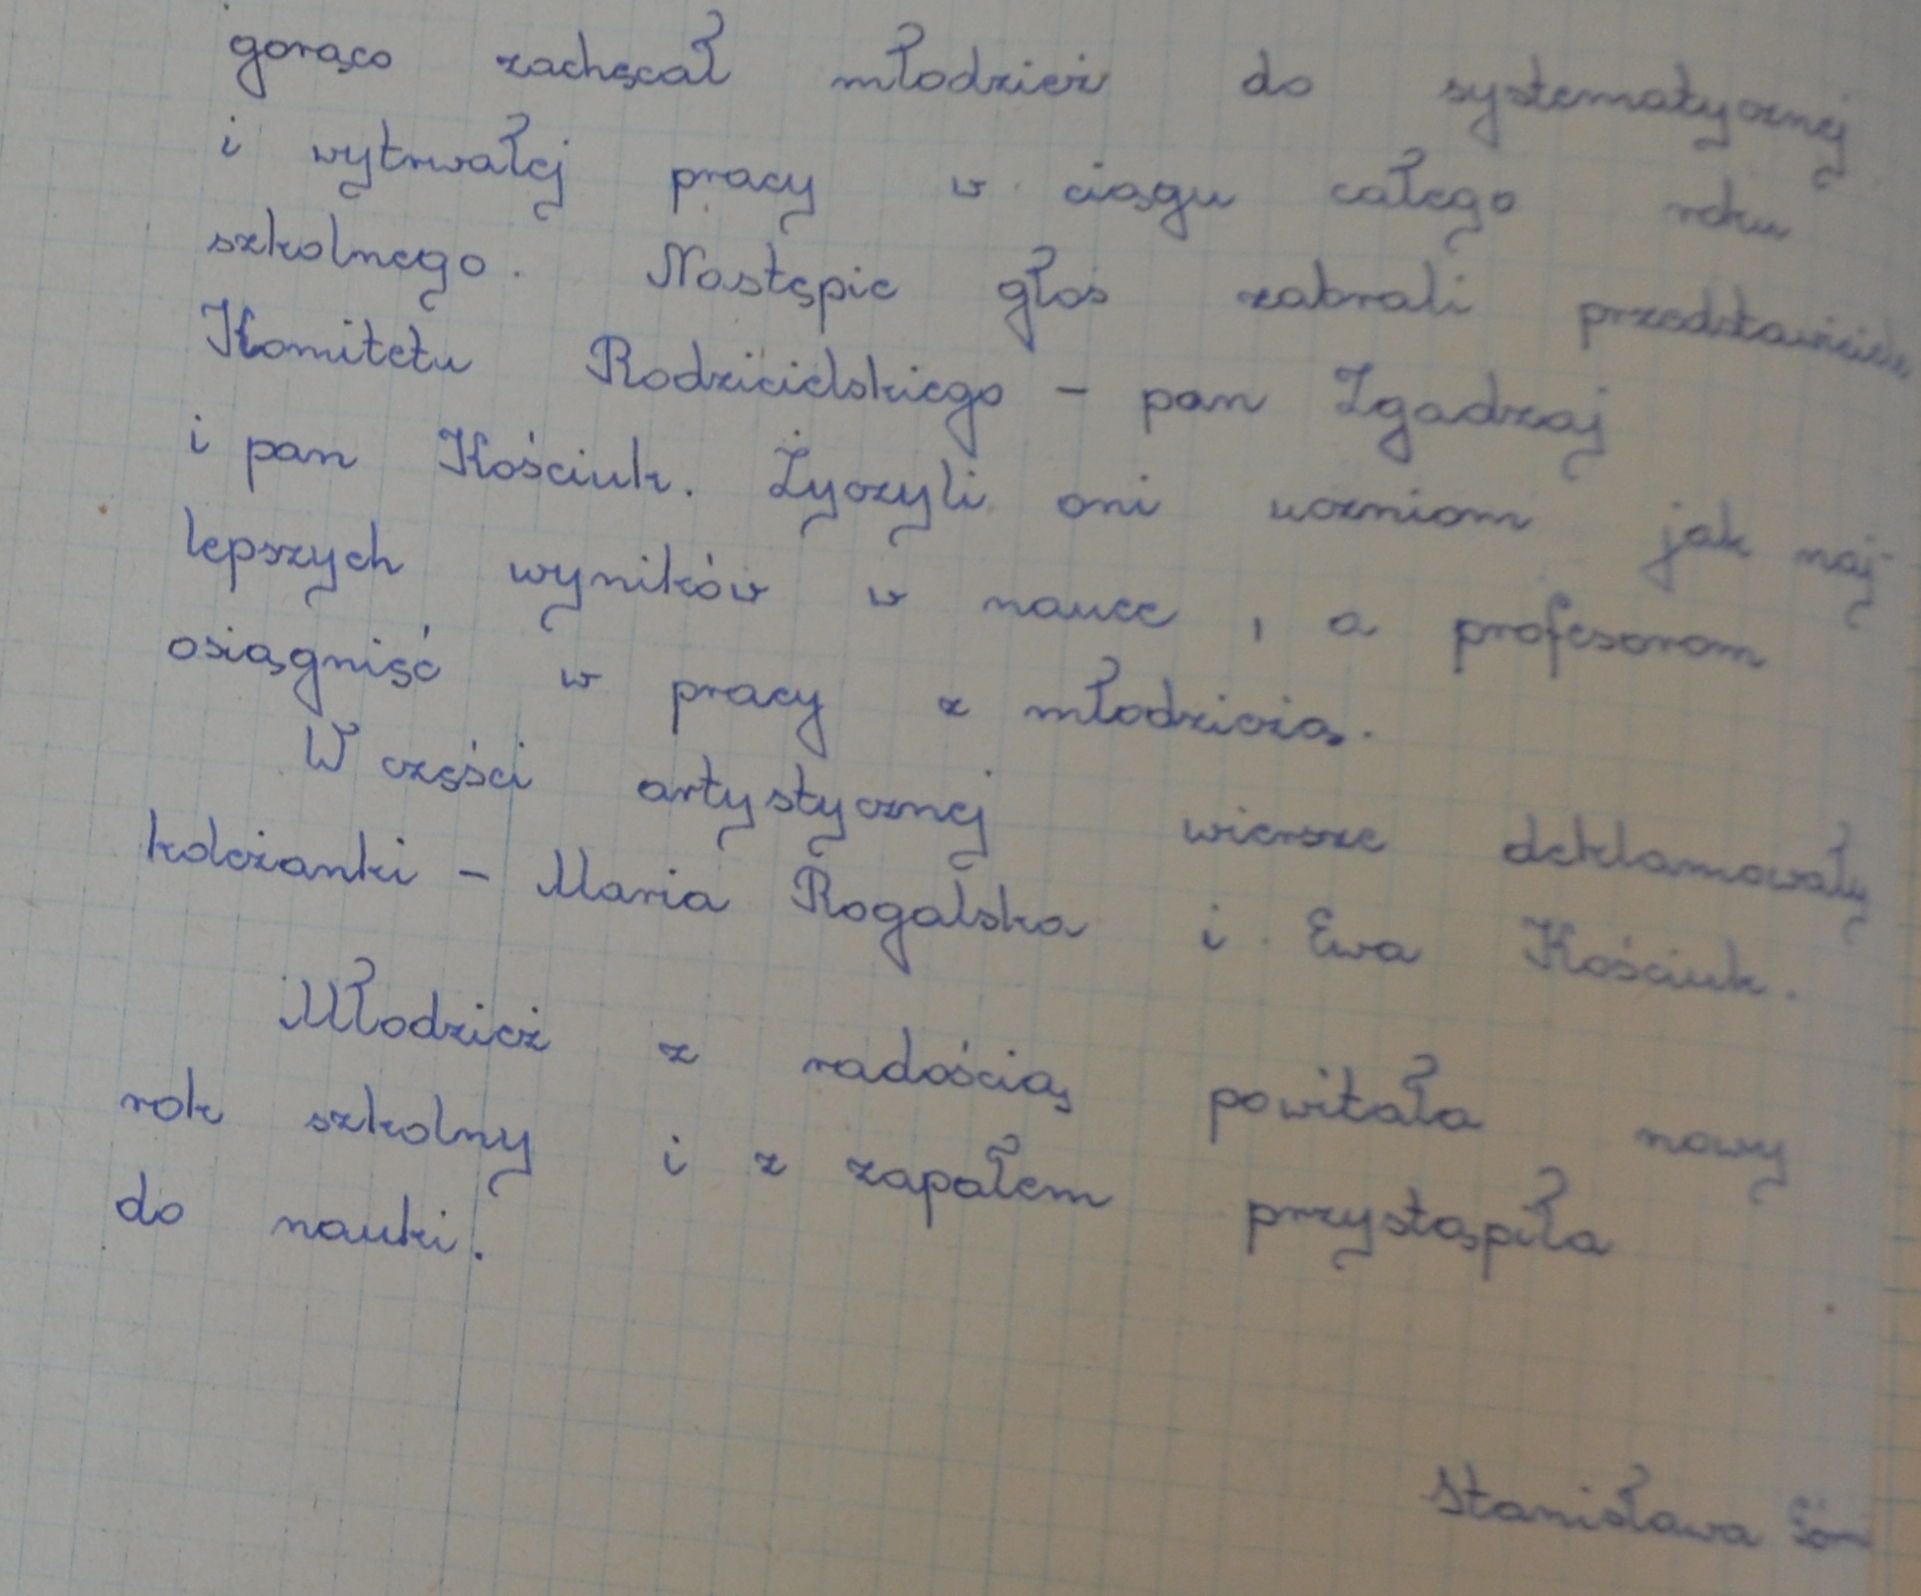 gorąco zachęcał młodzież do systematycznej
i wytrwałej pracy w ciągu całego roku
szkolnego. Następie głos zabrali przedstawiciele
Komitetu Rodzicielskiego - pan Zgadzaj
i pan Kościuk. Życzyli oni uczniom jak naj-
lepszych wyników w nauce, a profesorom
osiągnięć w pracy z młodzieżą.
W części artystycznej wiersze deklamowały
koleżanki - Maria Rogalska i Ewa Kościuk.
Młodzież z radością powitała nowy
rok szkolny i z zapałem przystąpiła
do nauki.
Stanisława